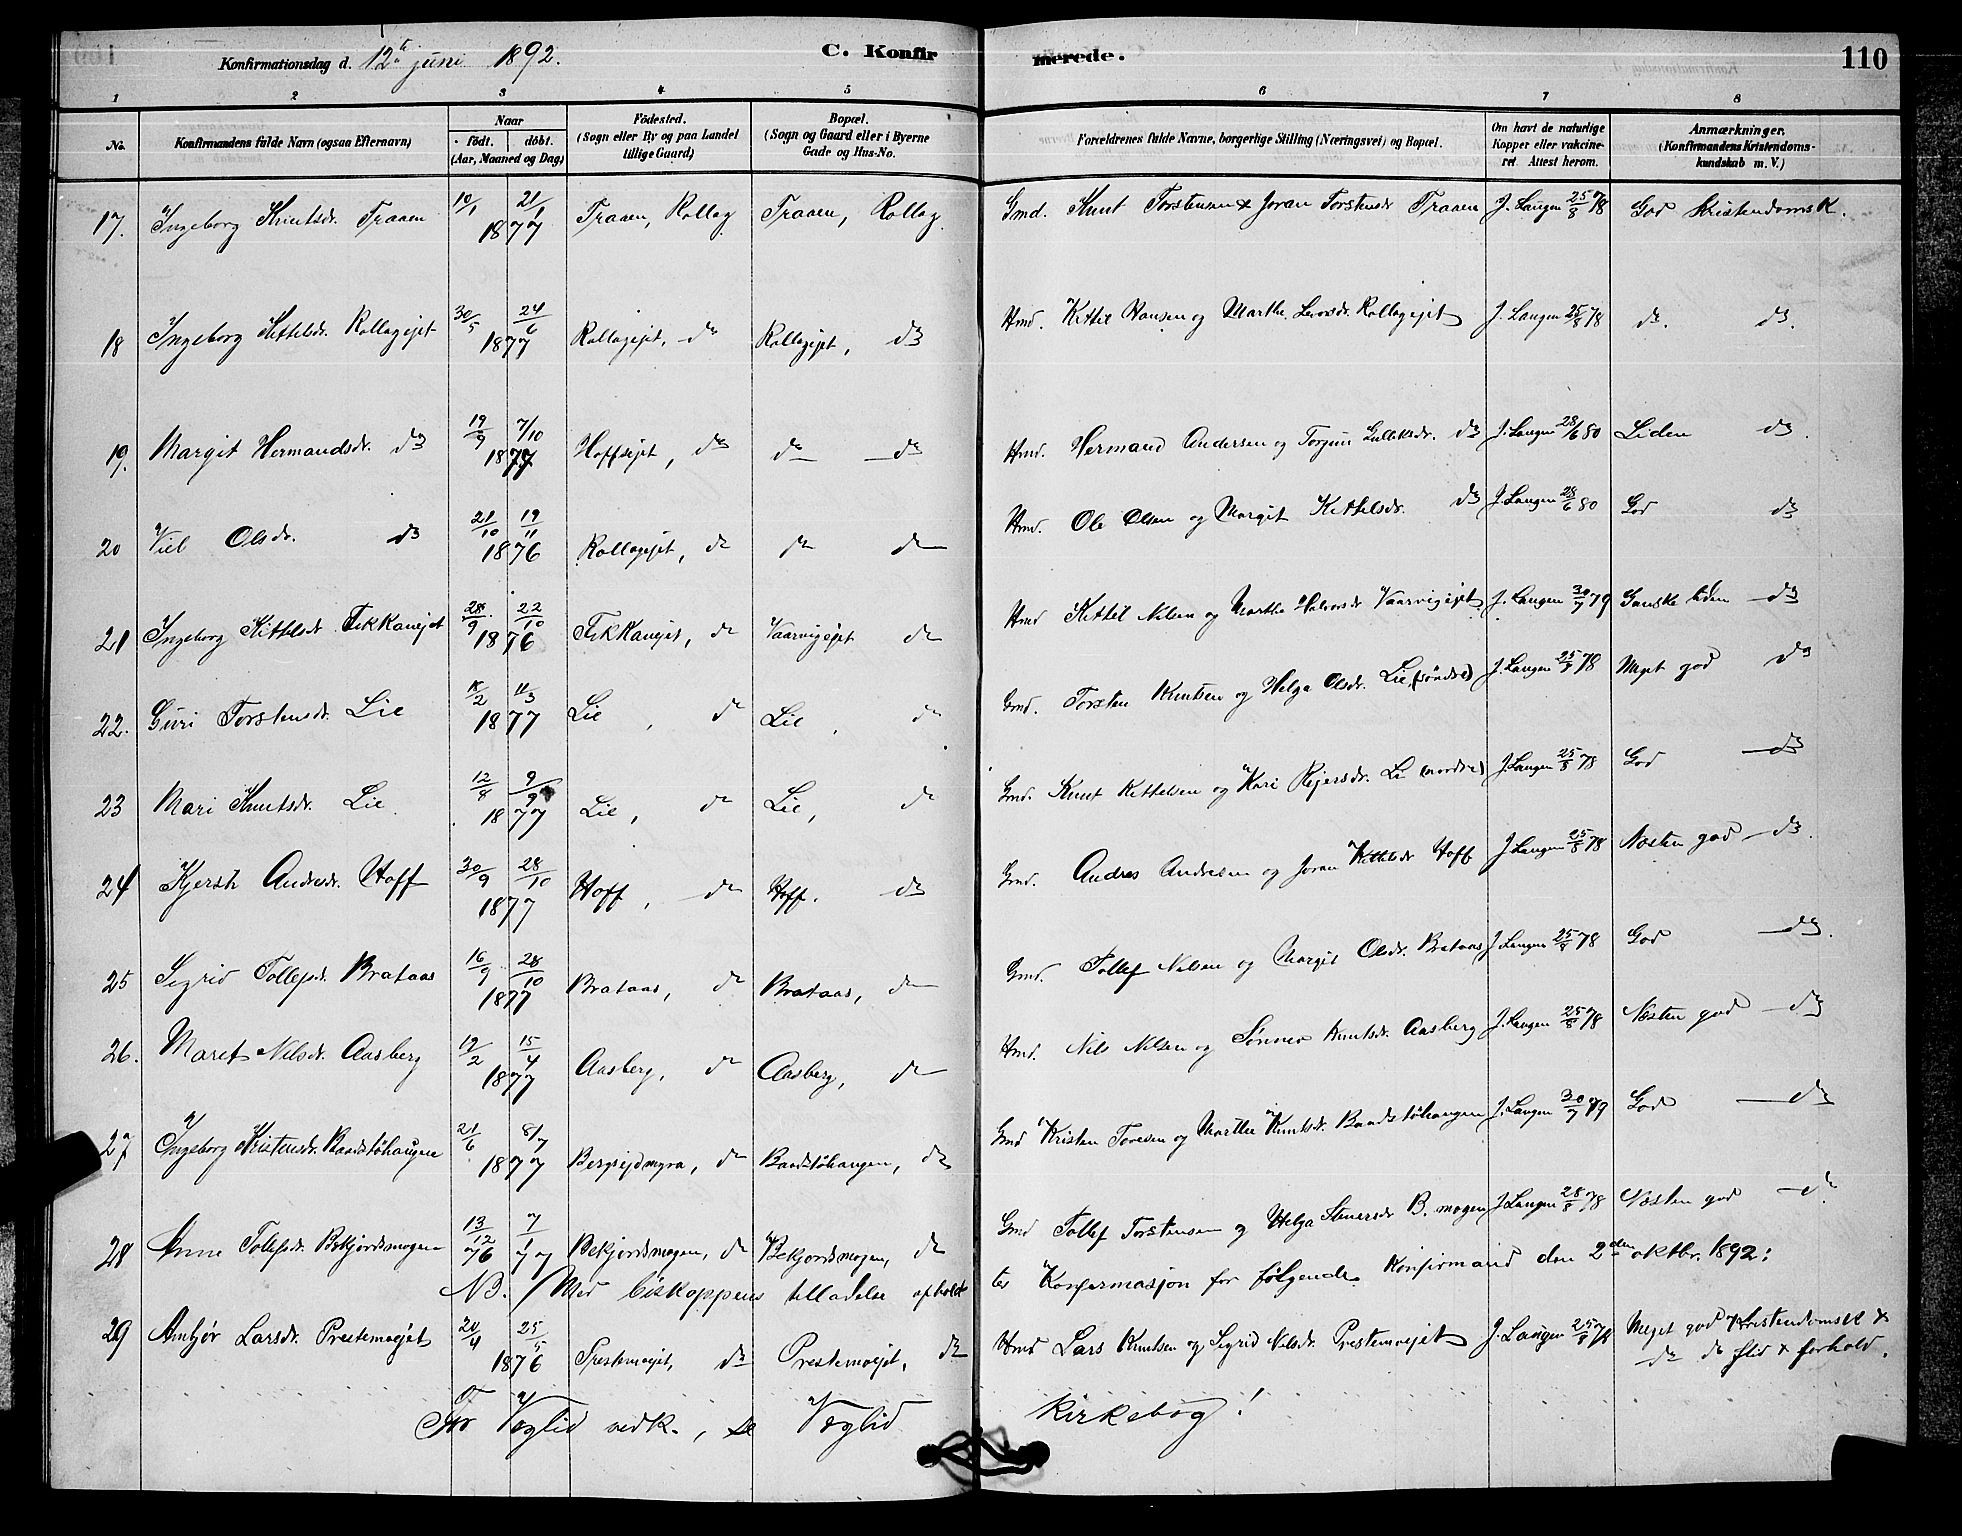 Konfirmationsdag d. 12te juni 1892.
C. Konfirmerede.
110
1 2 3 4 5 6 7 8
No.
Konfirmandens fulde Navn (ogsaa Efternavn)
Naar
födt. döbt.
(Aar, Maaned og Dag)
Födested.
(Sogn eller By og paa Landet
tillige Gaard)
Bopæl.
(Sogn og Gaard eller i Byerne
Gade og Hus-No.
Forældrenes fulde Navne, borgerlige Stilling (Næringsvei) og Bopæl.
Om havt de naturlige
Kopper eller vakcine-
ret. Attest herom.
Anmærkninger.
(Konfirmandens Kristendoms-
kundskab m. V.)
17. Ingeborg Knutsdr. Traaen 10/1 21/1 1877 Traaen, Rollag Traaen, Rollag Gmd. Knut Torstensen & Joran Torstensdr Traaen J. Langen 25/8 78 God Kristendomsk.
18 Ingeborg Kittelsdr. Rollagejet 30/5 24/6 1877 Rollagejet, do Rollagejet, do Hmd. Kittil Hansen og Marthe Rollagejet J. Langen 25/8 78 do. do.
19. Margit Hermandsdr. do 19/9 7/10 1877 Hoffsejet, do do do Hmd. Hermand Andersen og Torgun Gulliksdr. do J. Langen 28/6 80 Liden do.
20 Viel Olsdr. do 21/10 19/11 1876 Rollagejet, do do do Hmd. Ole Olsen og Margit Kittelsdr. do J. Langen 28/6 80 God do
21 Ingeborg Kittelsdr. Fikkanejet 28/9 22/10 1876 Fikkanejet, do Vaarvigejet do Hmd Kittil Nilsen og Marthe Halvorsdr Vaarvigejet J. Langen 30/7 79 Ganske liden do
22. Guri Torstensdr. Lie 11/3 1877 Lie, do Lie, do Gmd. Torsten Knutsen og Helga Olsdr. Lie (söndre) J. Langen 25/8 78 Meget god do
23 Mari Knutsdr. Lie 12/8 9/9 1877 Lie, do Lie, do Gmd. Knut Kittelsen og Kari Rejersdr. Li (nordre) J. Langen 25/8 78 God do
24 Kjersti Andersdr. Hoff 30/9 28/10 1877 Hoff, do Hoff, do Gmd. Andres Andresen og Joran Kittelsdr Hoff J. Langen 25/8 78 Næsten god do.
25 Sigrid Tollefsdr. Brataas 16/9 28/10 1877 Brataas, do Brataas, do Gmd. Tollef Nilsen og Margit Olsdr. Brataas J. Langen 25/8 78 God do.
26. Maret Nilsdr. Aasberg 19/2 15/4 1877 Aasberg, do Aasberg, do Hmd. Nils Nilsen og Sönnev Knutsdr. Aasberg J. Langen 25/8 78 Næsten god do
27 Ingeborg Kristensdr. Baadstöhaugen 21/6 8/7 1877 Bergsejdmyra, do Baadstöhaugen, do Gmd Kristen Toresen og Marthe Knutsdr. Baadstöhaugen J. Langen 30/7 79 God do
28 Anne Tollefsdr. Bekjordsmogen 13/12 76 7/1 77 Bekjordsmogen, do Bekjordsmogen, do Gmd Tollef Torstensen og Helga Stenersdr B. mogen J. Langen 28/8 78 Næsten god do
NB. / Med biskoppens tilladelse afholdtes Konfirmasjon for følgende Konfirmand den 2den oktbr. 1892:
29 Anbjør Larsdr. Prestemoejet 20/4 25/5 1876 Prestemoejet, do Prestemoejet, do Hmd Lars Knutsen og Sigrid Nilsdr. Prestemoejet J. Langen 25/8 78 Meget god Kristendomsk &
do do flid & forhold.
For Veglid vedk., se Veglid Kirkebog!